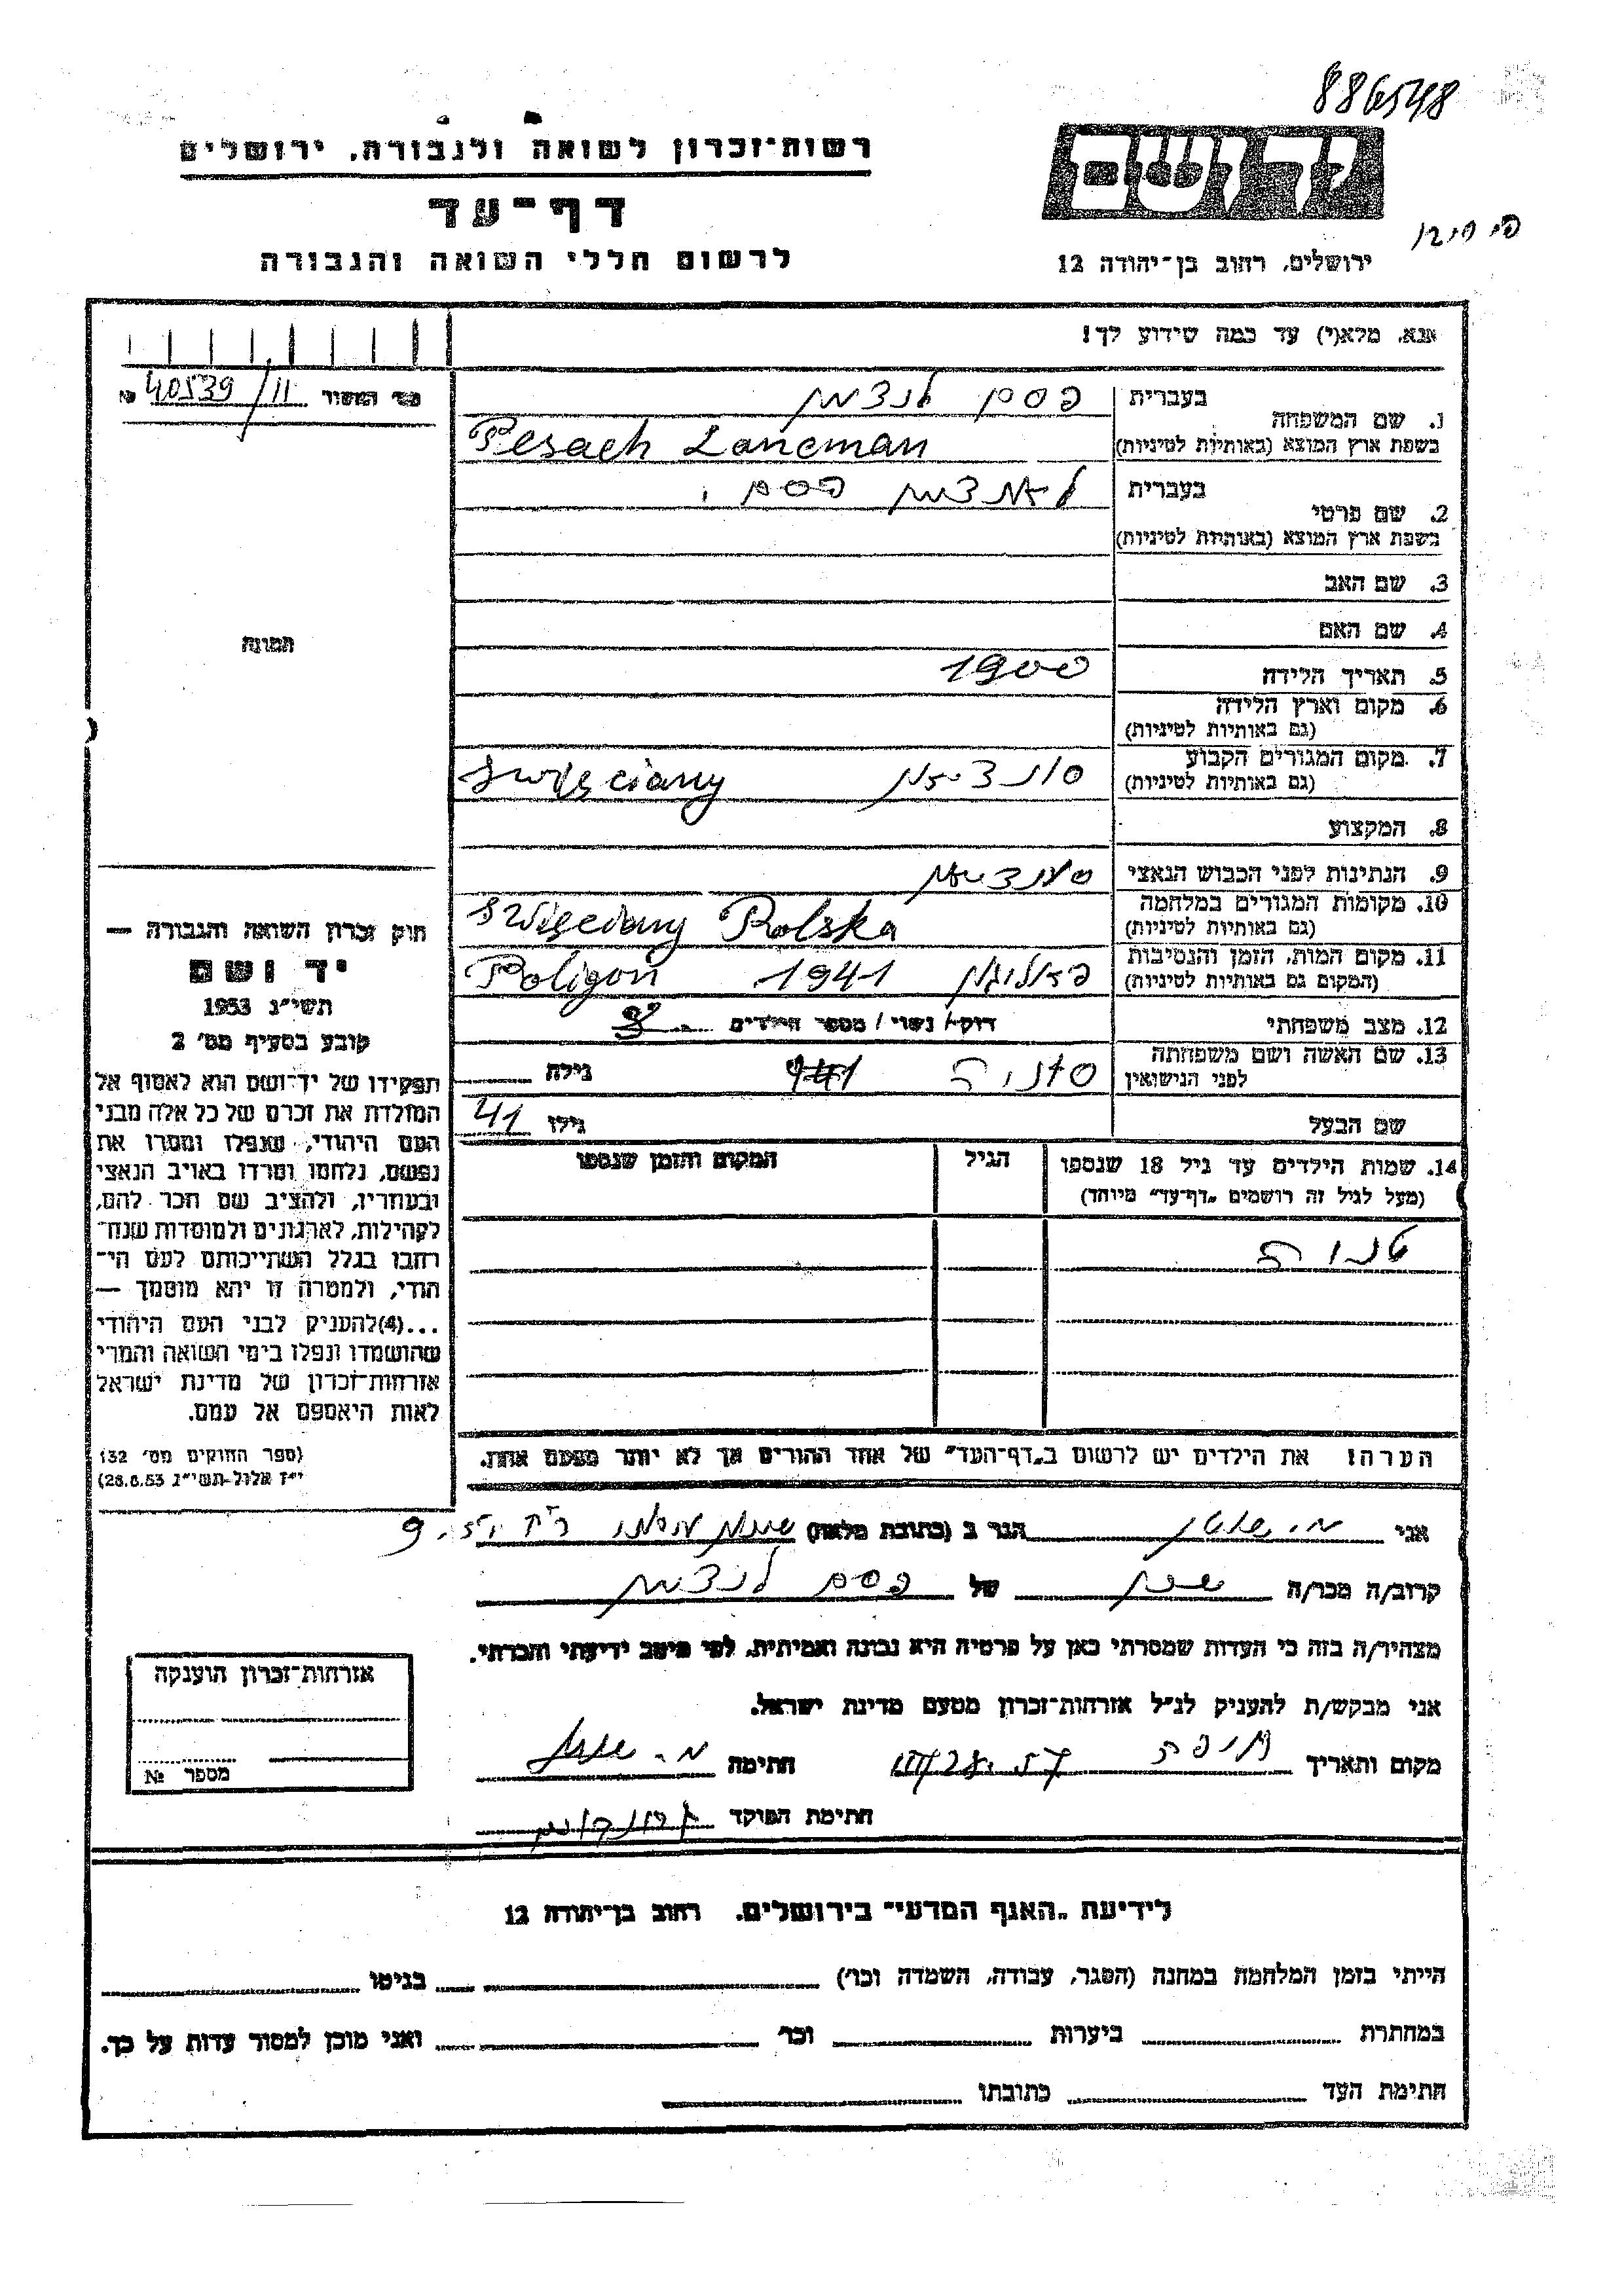 886548
רשות־זכרון לשואה ולגבורה, ירושלים
דף־עד
לרשום חללי השואה והגבורה
ירושלים, רחוב בן־יהודה 12
אנא, מלא(י) עד כמה שידוע לך!
№ 40539/11
1. שם המשפחה
בעברית פסח לנצמן
בשפת ארץ המוצא (באותיות לטיניות) Pesach Lancman
2. שם פרטי
בעברית לאנצמן פסח
בשפת ארץ המוצא (באותיות לטיניות)
3. שם האב
4. שם האם
5. תאריך הלידה 1900
6. מקום וארץ הלידה
(גם באותיות לטיניות)
7. מקום המגורים הקבוע
(גם באותיות לטיניות) Święciany
8. המקצוע
9. הנתינות לפני הכבוש הנאצי
10. מקומות המגורים במלחמה
(גם באותיות לטיניות) Święciany Polska
11. מקום המות, הזמן והנסיבות
(המקום גם באותיות לטיניות) 1941 Poligon
12. מצב משפחתי רווק / נשוי / מספר הילדים
13. שם האשה ושם משפחתה
לפני הנישואין גילה
שם הבעל גילו 41
14. שמות הילדים עד גיל 18 שנספו
(מעל לגיל זה רושמים „דף־עד" מיוחד)
הגיל
המקום והזמן שנספו
הערה! את הילדים יש לרשום ב„דף־העד" של אחד ההורים אך לא יותר מפעם אחת.
תמונה
חוק זכרון השואה והגבורה —
יד ושם
תשי"ג 1953
קובע בסעיף מס' 2
תפקידו של יד־ושם הוא לאסוף אל
המולדת את זכרם של כל אלה מבני
העם היהודי, שנפלו ומסרו את
נפשם, נלחמו ומרדו באויב הנאצי
ובעוזריו, ולהציב שם וזכר להם,
לקהילות, לארגונים ולמוסדות שנח־
רבו בגלל השתייכותם לעם הי־
הודי, ולמטרה זו יהא מוסמך —
...(4) להעניק לבני העם היהודי
שהושמדו ונפלו בימי השואה והמרי
אזרחות־זכרון של מדינת ישראל
לאות היאספם אל עמם.
(ספר החוקים מס' 132
י"ז אלול תשי"ג 28.8.53)
אני הגר ב (כתובת מלאה)
קרוב/ה מכר/ה שכן של פסח לנצמן
מצהיר/ה בזה כי העדות שמסרתי כאן על פרטיה היא נכונה ואמיתית, לפי מיטב ידיעתי והכרתי.
אני מבקש/ת להעניק לנ"ל אזרחות־זכרון מטעם מדינת ישראל.
מקום ותאריך חתימה
חתימת הפוקד
אזרחות־זכרון הוענקה
מספר №
לידיעת „האגף המדעי" בירושלים. רחוב בן־יהודה 12
הייתי בזמן המלחמה במחנה (הסגר, עבודה, השמדה וכו') בגיטו
במחתרת ביערות וכו' ואני מוכן למסור עדות על כך.
חתימת העד כתובתו